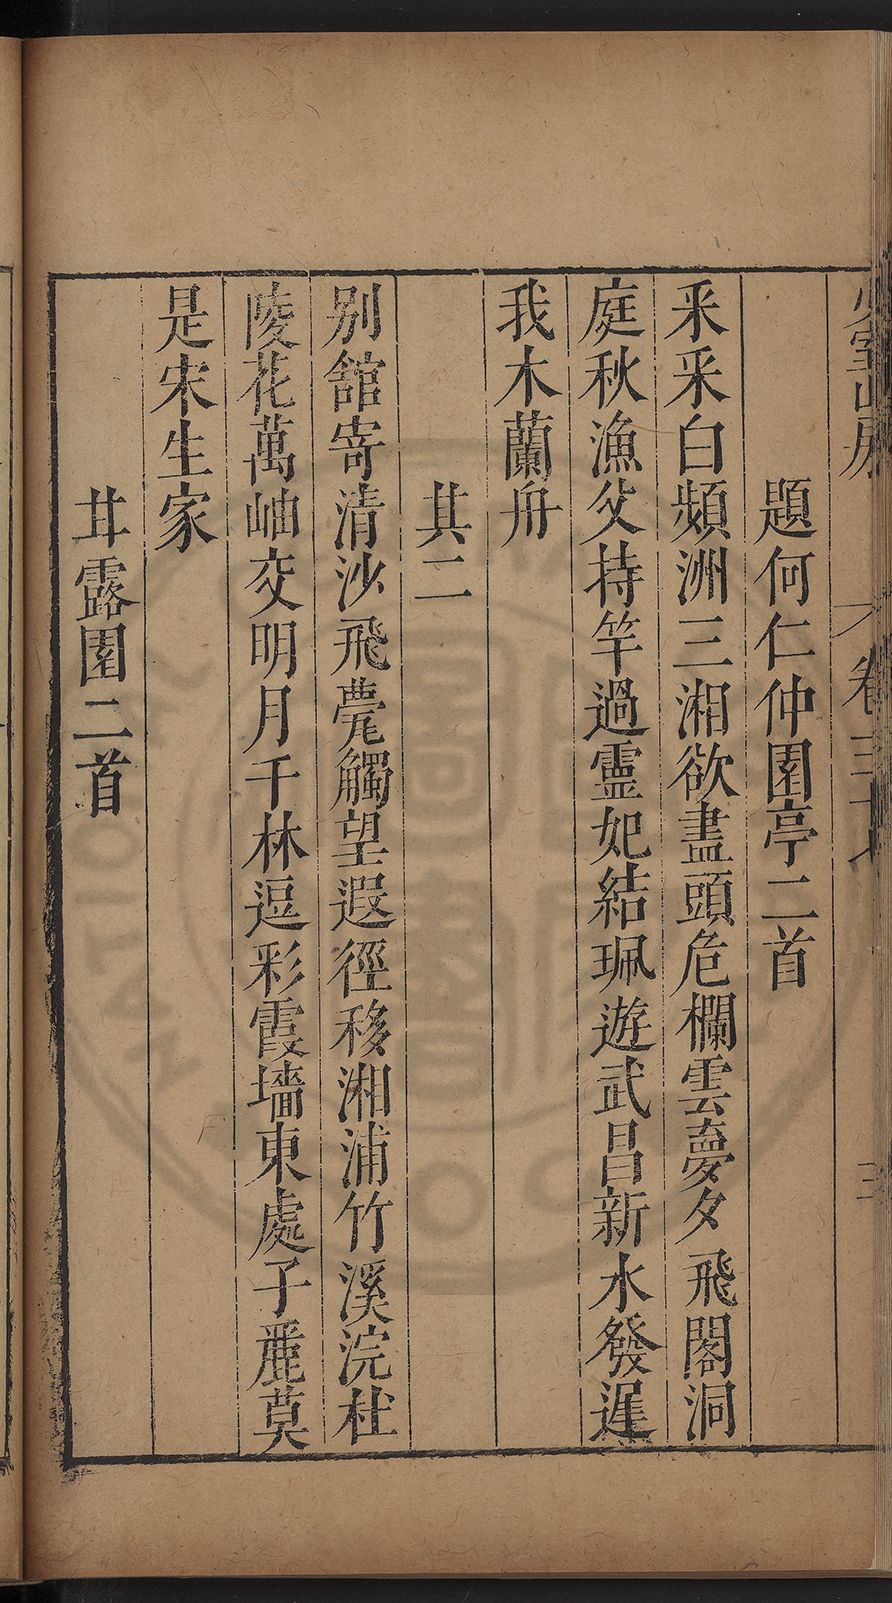 少室山房 卷三十七 三
題何仁仲園亭二首
采采白蘋洲三湘欲盡頭危欄雲夢夕飛閣洞
庭秋漁父持竿過靈妃結珮遊武昌新水發遲
我木蘭舟
其二
別館寄清沙飛甍觸望遐徑移湘浦竹溪浣杜
陵花萬岫交明月千林逗彩霞墻東處子麗莫
是宋生家
甘露園二首